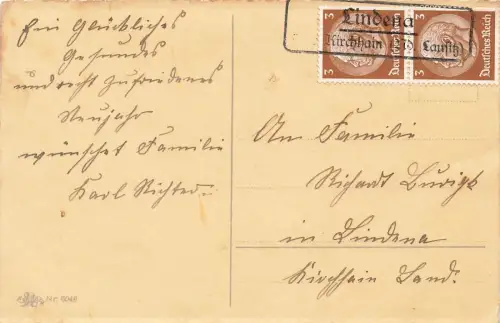 Ein Glückliches
Gesundes
und recht zufriedenes
Neujahr
wünschet Familie
Karl Richter
Lindena
Kirchhain Lausitz
3 Deutsches Reich
3 Deutsches Reich
An Familie
Richard
in Lindena
Kirchhain Land.